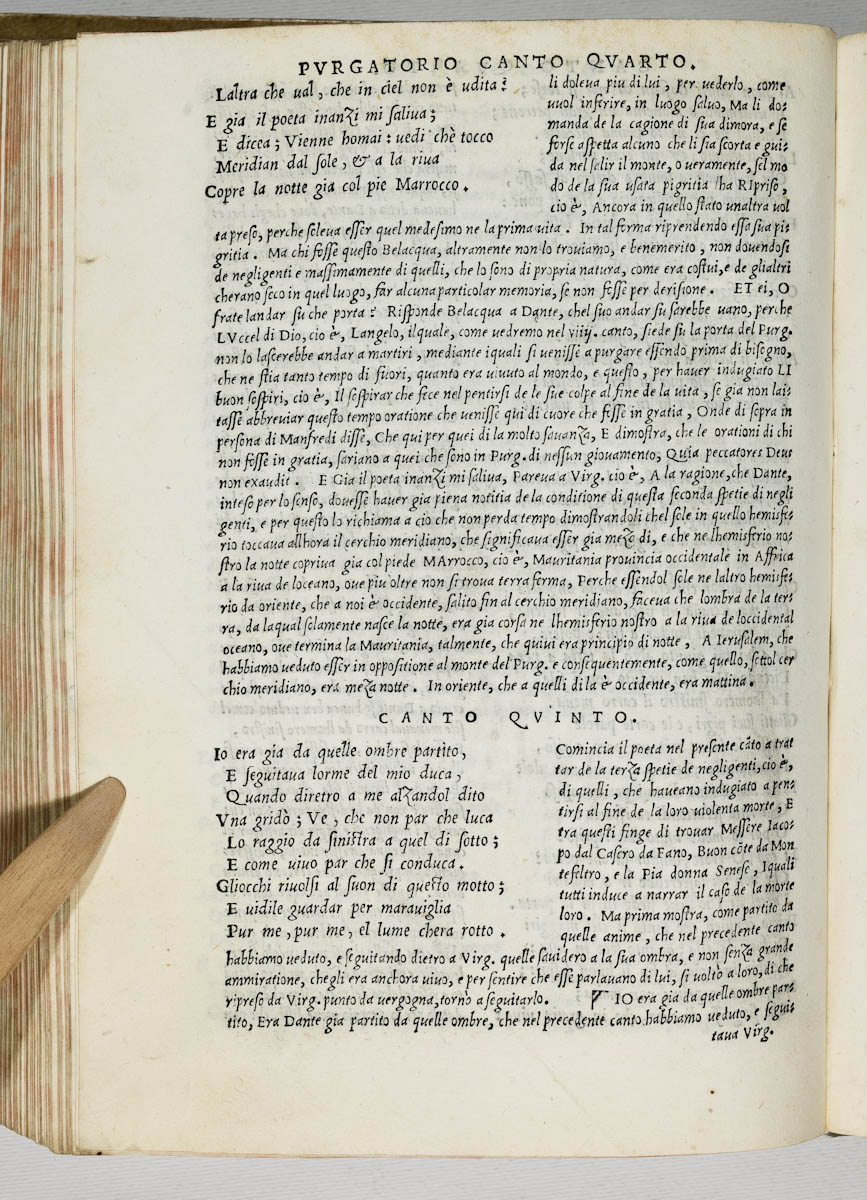 PVRGATORIO CANTO QVARTO.
Laltra che ual, che in ciel non è udita:
E gia il poeta inanzi mi saliua;
E dicea; Vienne homai: uedi chè tocco
Meridian dal sole, & a la riua
Copre la notte gia col pie Marrocco.
li doleua piu di lui, per uederlo, come
uuol inferire, in luogo saluo, Ma li do-
manda de la cagione di sua dimora, e se
forse aspetta alcuno che li sia scorta e gui-
da nel salir il monte, o ueramente, sel mo
do de la sua usata pigritia lha RIpriso,
cio è, Ancora in quello stato unaltra uol
ta preso, perche soleua esser quel medesimo ne la prima uita. In tal forma riprendendo essa sua pi-
gritia. Ma chi fosse questo Belacqua, altramente non lo trouiamo, e benemerito, non douendosi
de negligenti e massimamente di quelli, che lo sono di propria natura, come era costui, e de glialtri
cherano seco in quel luogo, far alcuna particolar memoria, se non fesse per derisione. ET ei, O
frate landar su che porta? Risponde Belacqua a Dante, chel suo andar su sarebbe uano, perche
LVccel di Dio, cio è, Langelo, ilquale, come uedremo nel viiij. canto, siede su la porta del Purg.
non lo lascerebbe andar a martiri, mediante iquali si uenisse a purgare essendo prima di bisegno,
che ne stia tanto tempo di fuori, quanto era uiuuto al mondo, e questo, per hauer indugiato LI
buon sospiri, cio è, Il sospirar che fece nel pentirsi de le sue colpe al fine de la uita, se gia non lai-
tasse abbreuiar questo tempo oratione che uenisse qui di cuore che fosse in gratia, Onde di sopra in
persona di Manfredi disse, Che qui per quei di la molto sauanza, E dimostra, che le orationi di chi
non fosse in gratia, sariano a quei che sono in Purg. di nessun giouamento, Quia peccatores Deus
non exaudit. E Gia il poeta inanzi mi saliua, Pareua a Virg. cio è, A la ragione, che Dante,
inteso per lo senso, douesse hauer gia piena notitia de la conditione di questa seconda spetie di negli
genti, e per questo lo richiama a cio che non perda tempo dimostrandoli chel sole in quello hemisfe-
rio toccaua allhora il cerchio meridiano, che significaua esser gia mezo di, e che ne lhemisferio no-
stro la notte copriua gia col piede MArrocco, cio è, Mauritania prouincia occidentale in Affrica
a la riua de loceano, oue piu oltre non si troua terra ferma, Perche essendol sole ne laltro hemisfe-
rio da oriente, che a noi è occidente, salito fin al cerchio meridiano, faceua che lombra de la ter-
ra, da laqual solamente nasce la notte, era gia corsa ne lhemisferio nostro a la riua de loccidental
oceano, oue termina la Mauritania, talmente, che quiui era principio di notte, A Ierusalem, che
habbiamo ueduto esser in oppositione al monte del Purg. e consequentemente, come quello, sottol cer
chio meridiano, era meza notte. In oriente, che a quelli di la è occidente, era mattina.
CANTO QVINTO.
Io era gia da quelle ombre partito,
E seguitaua lorme del mio duca,
Quando diretro a me alzandol dito
Vna gridò; Ve, che non par che luca
Lo raggio da sinistra a quel di sotto;
E come uiuo par che si conduca.
Gliocchi riuolsi al suon di questo motto;
E uidile guardar per marauiglia
Pur me, pur me, el lume chera rotto.
Comincia il poeta nel presente cāto a trat
tar de la terza spetie de negligenti, cio è,
di quelli, che haueano indugiato a pen-
tirsi al fine de la loro uiolenta morte, E
tra questi finge di trouar Messere Iaco-
po dal Casero da Fano, Buon cōte da Mon
tefeltro, e la Pia donna Senese, Iquali
tutti induce a narrar il caso de la morte
loro. Ma prima mostra, come partito da
quelle anime, che nel precedente canto
habbiamo ueduto, e seguitando dietro a Virg. quelle sauidero a la sua ombra, e non senza grande
ammiratione, chegli era anchora uiuo, e per sentire che esse parlauano di lui, si uoltò a loro, di che
ripreso da Virg. punto da uergogna, tornò a seguitarlo. IO era gia da quelle ombre par-
tito, Era Dante gia partito da quelle ombre, che nel precedente canto habbiamo ueduto, e segui-
taua Virg.